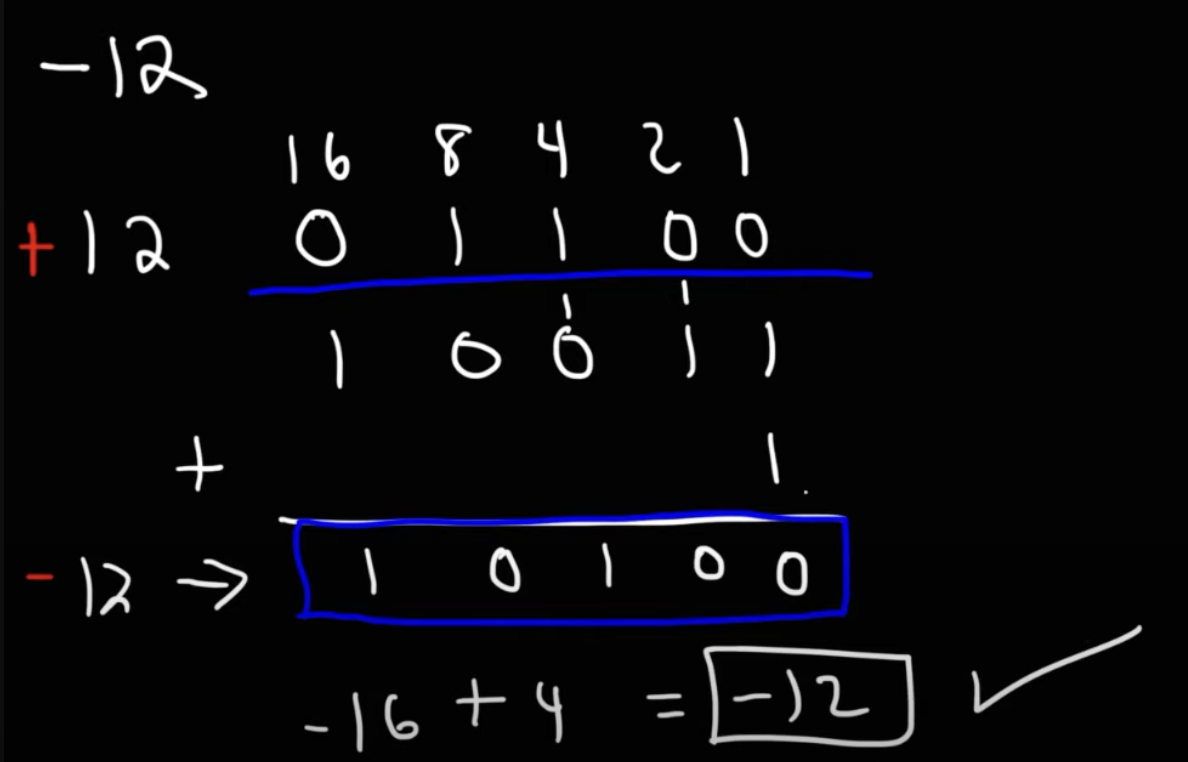 -12
16 8 4 2 1
+12 0 1 1 0 0
1 1
1 0 0 1 1
+ 1
-12 → 1 0 1 0 0
-16 + 4 = -12 ✓